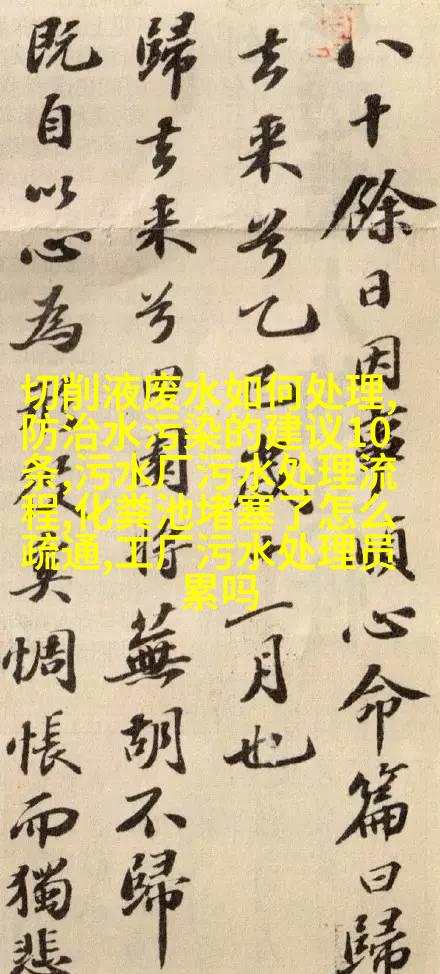 八十餘日因事順心命篇曰歸
去来兮乙巳歲十一月也
歸去来兮田園將蕪胡不歸
既自以心為形役奚惆悵而獨悲
切削液废水如何处理,
防治水污染的建议10
条,污水厂污水处理流
程,化粪池堵塞了怎么
疏通,工厂污水处理员
累吗